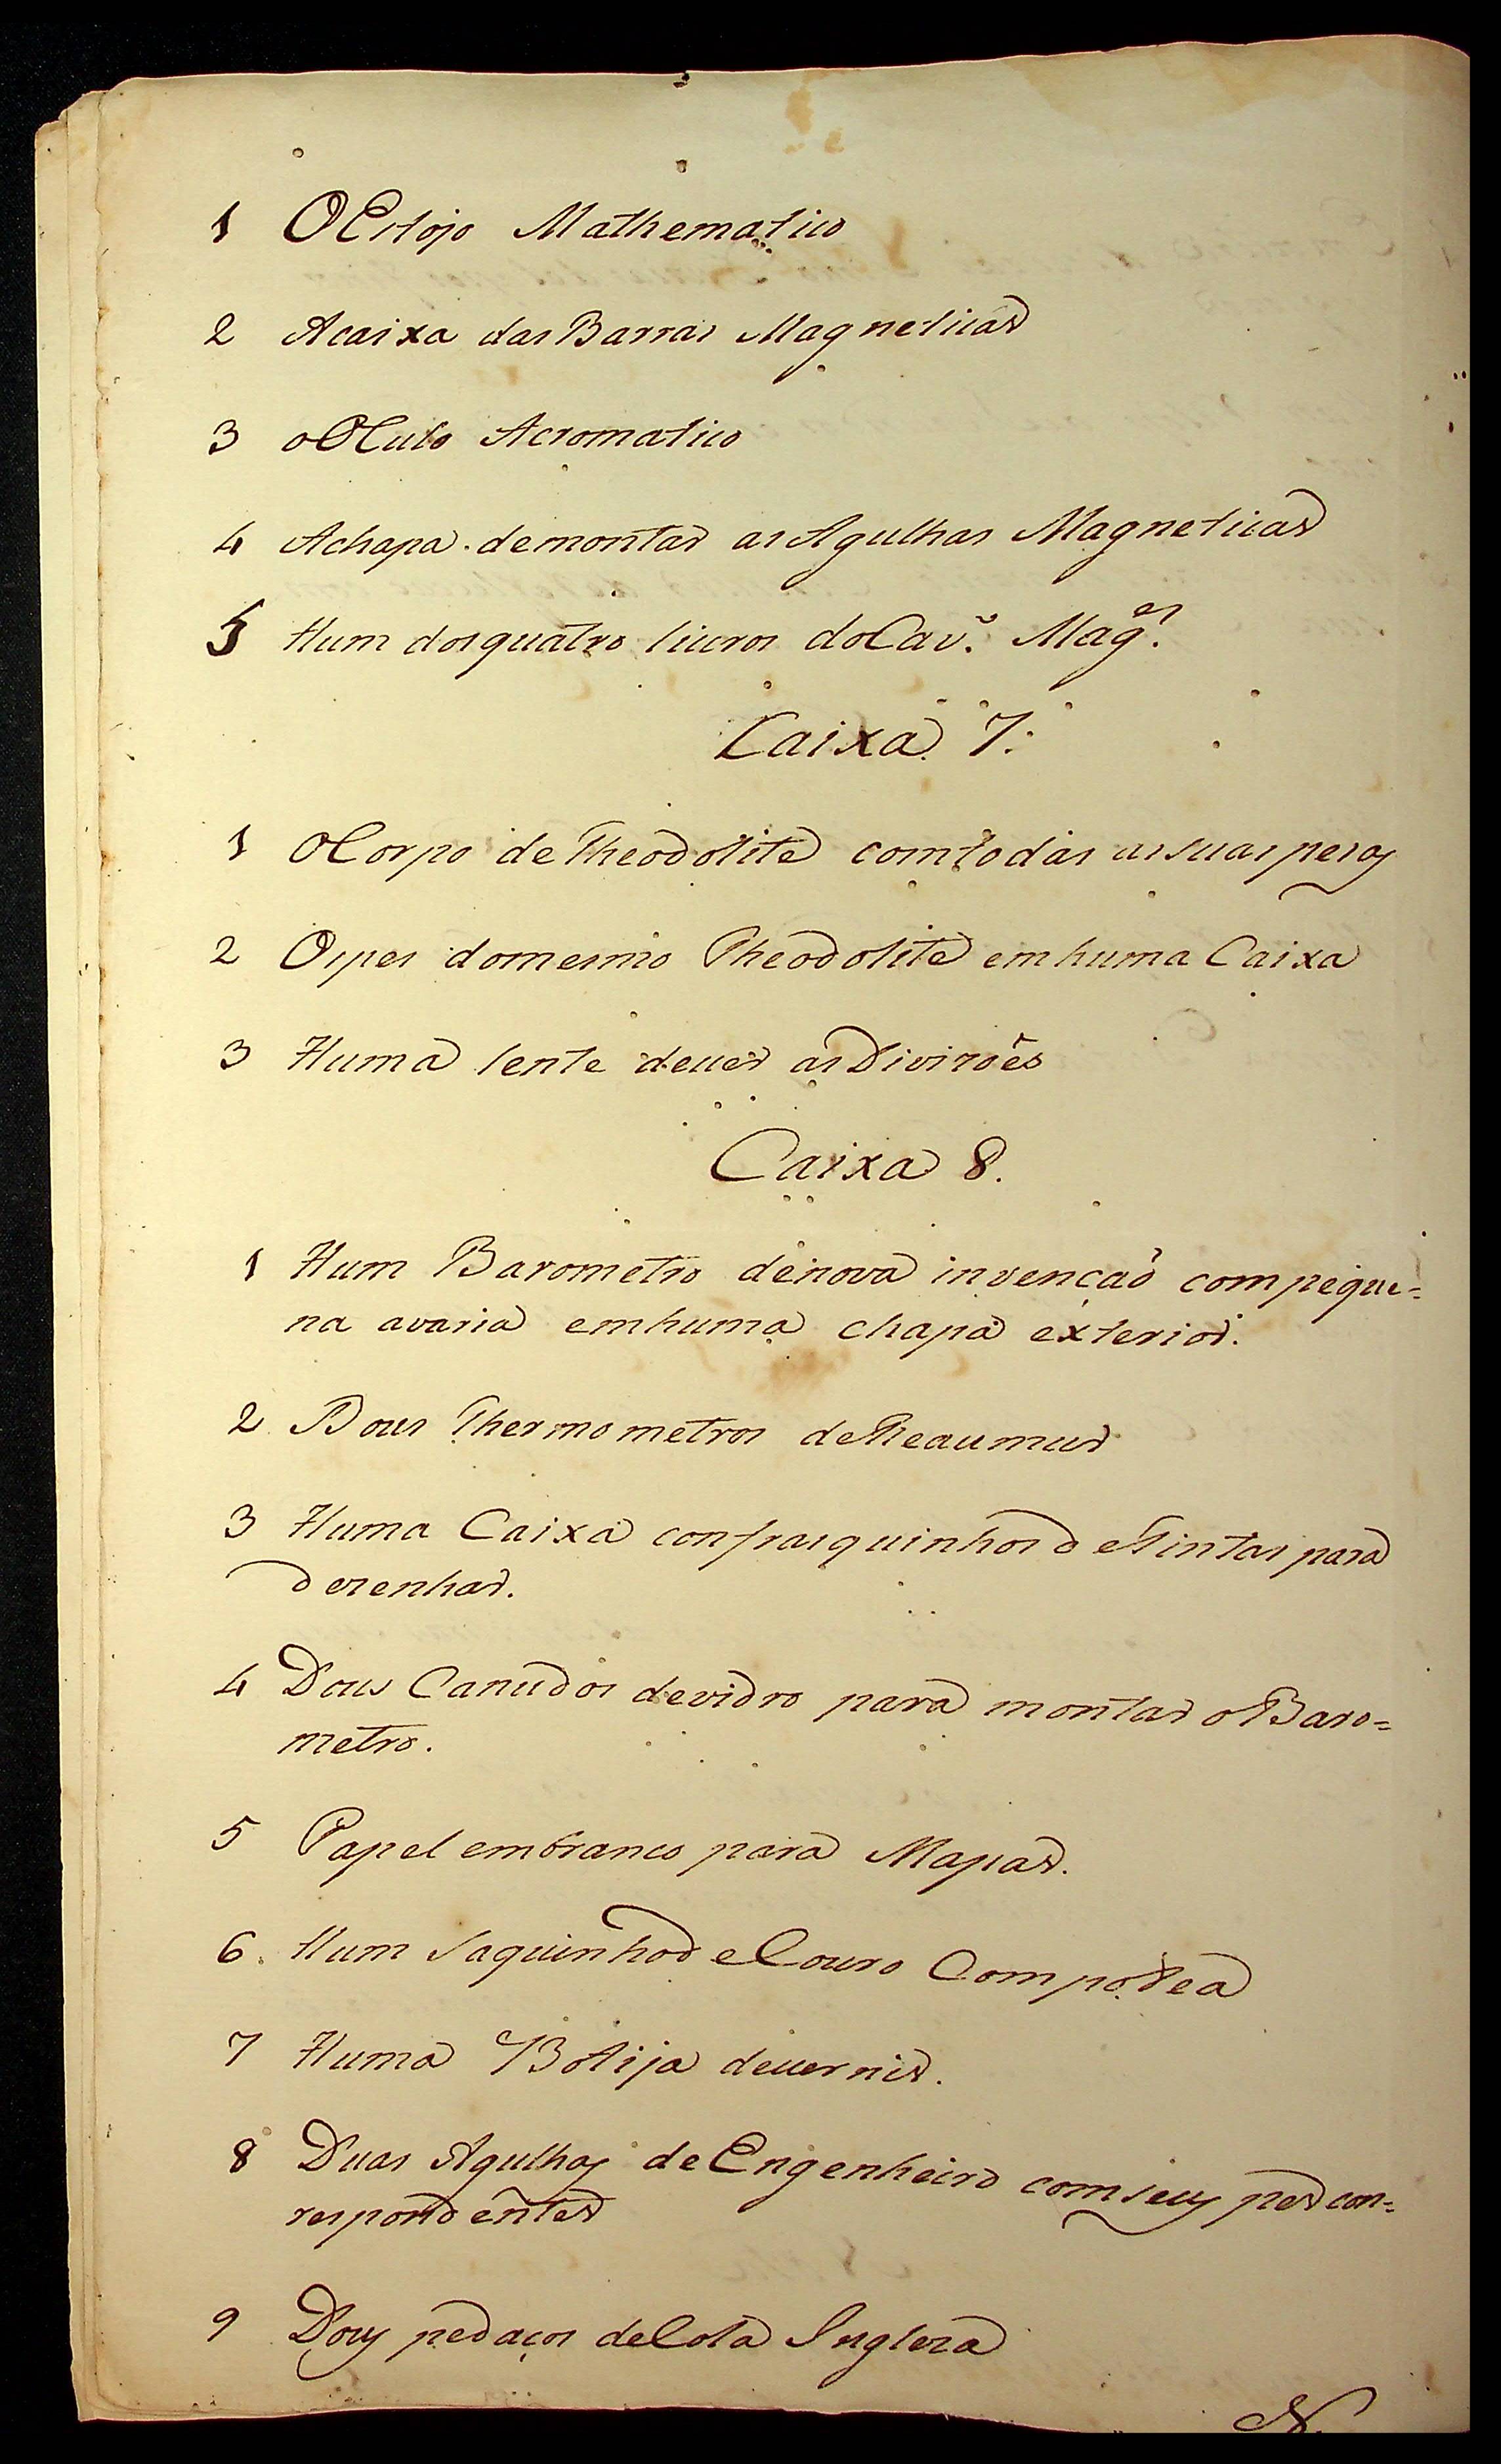 1 O Estojo Mathematico
2 A caixa das Barras Magneticas
3 o Oculo Acromatico
4 A chapa de montar as Agulhas Magneticas
5 Hum dos quatro liuros do Cav.º Mag.es
Caixa 7.
1 O Corpo de Theodolite com todas as suas pesas
2 Os pes do mesmo Theodolite em huma Caixa
3 Huma lente de uer as Divizões
Caixa 8.
1 Hum Barometro de nova invençaõ com peque=
na avaria em huma chapa exterior.
2 Dous Thermometros de Reaumur
3 Huma Caixa con frasquinhos de Tintas para
dezenhar.
4 Dous Canudos de vidro para montar o Baro=
metro.
5 Papel em branco para Mapas.
6. Hum saquinho de Couro Com podea
7 Huma Botija de uernis.
8 Duas Agulhas de Engenheiro com seus pes con=
respondentes
9 Dous pedaços de Cola Ingleza
N.